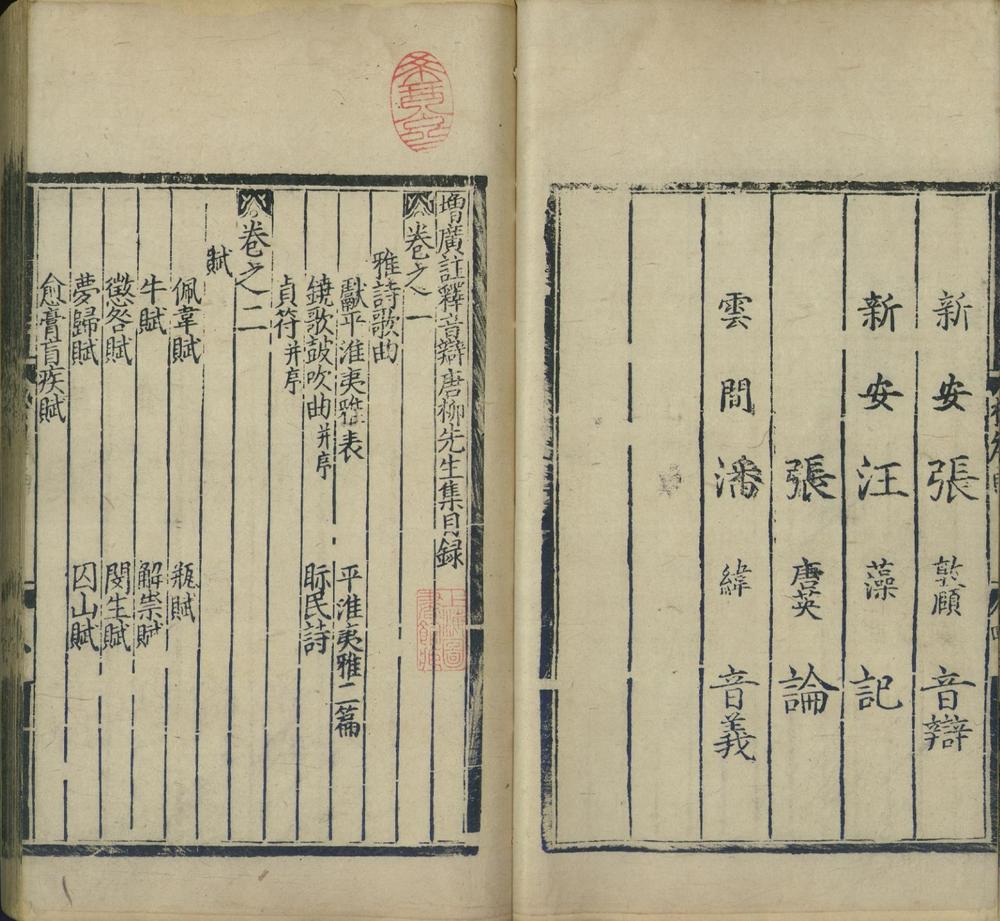 新安張敦頤音辯
新安汪藻記
張唐英論
雲間潘緯音義
增廣註釋音辯唐柳先生集目録
卷之一
雅詩歌曲
獻平淮夷雅表 平淮夷雅二篇
鐃歌鼓吹曲并序 眎民詩
貞符并序
卷之二
賦
佩韋賦 瓶賦
牛賦 解祟賦
懲咎賦 閔生賦
夢歸賦 囚山賦
愈膏肓疾賦
上海圖書館藏